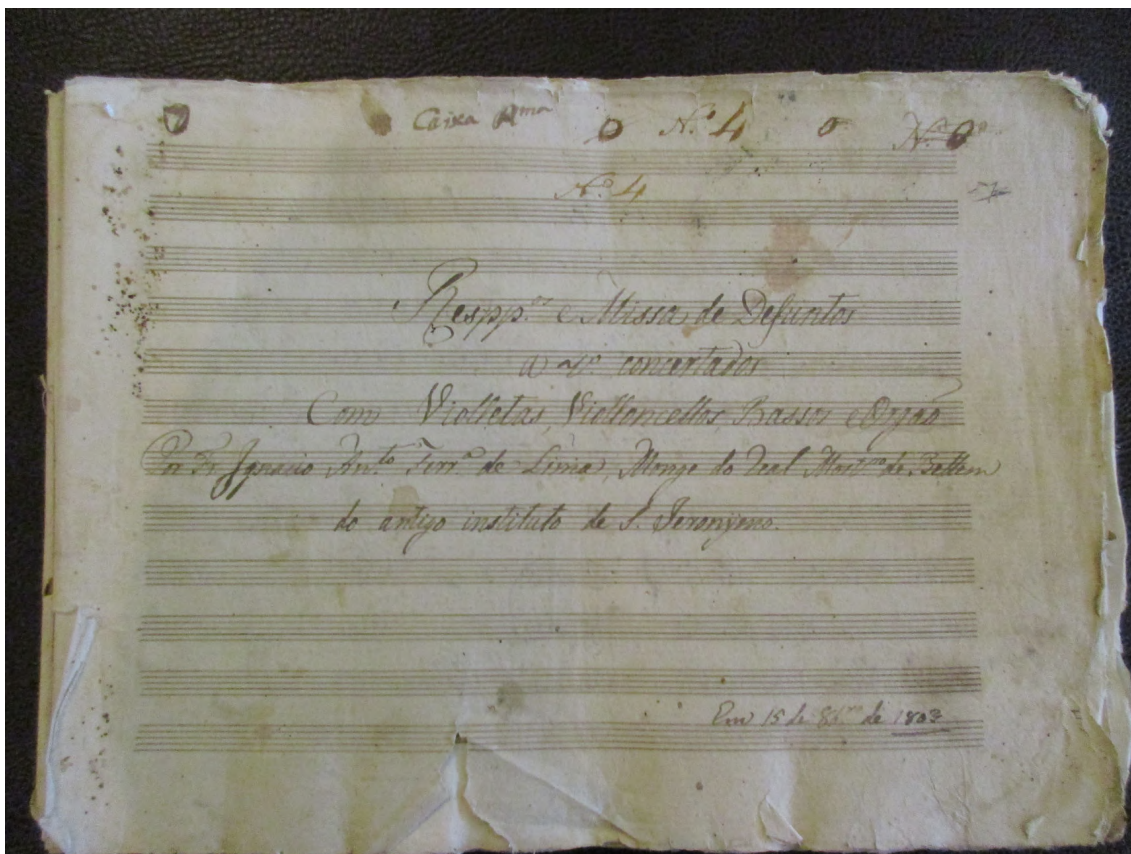 Caixa
Nº 4
Nº 4
Respp.os e Missa de Defuntos
a 4º concertados
Com Violletas, Violloncellos, Bassos e Orgaõ
Por Fr. Ignacio An.to Ferr.ª de Lima, Monge do Real Most.ro de Bellem
do antigo instituto de S. Jeronymo.
Em 15 de 8br.o de 1803